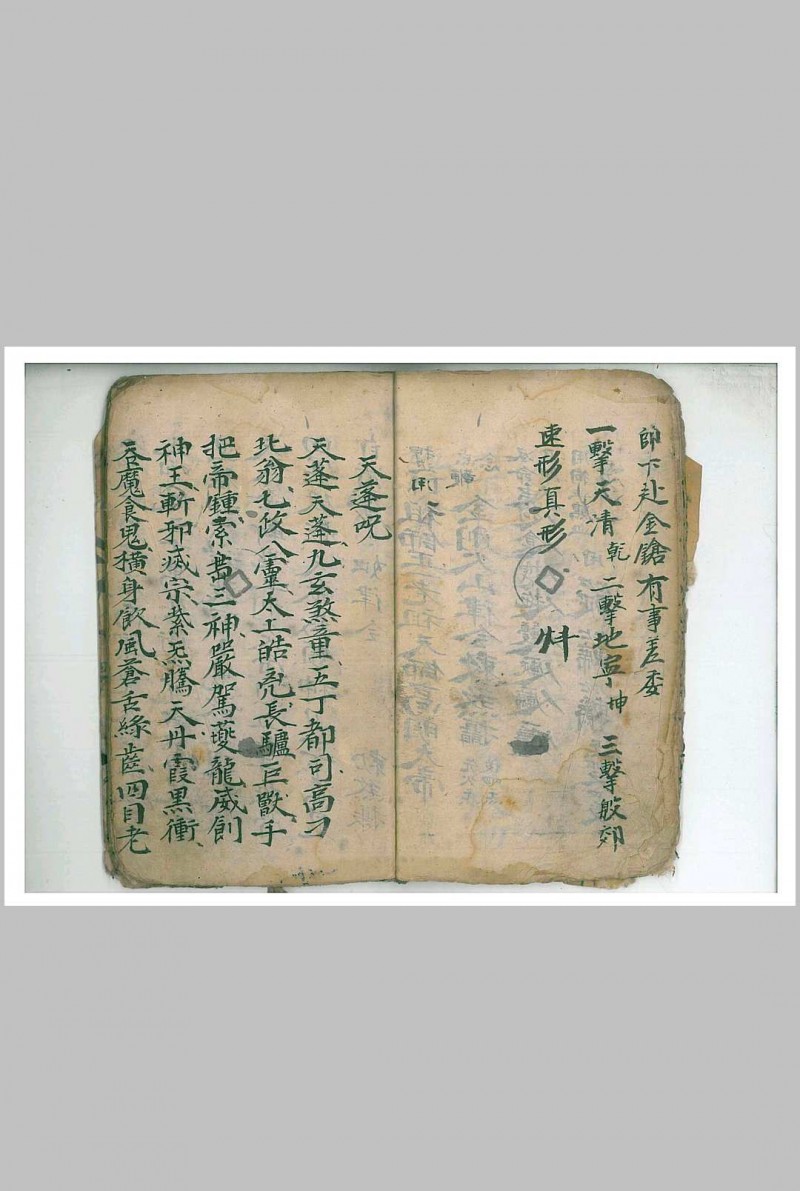 帥下赴金鎗有事差委
一擊天清 乾 二擊地寧 坤 三擊殷郊
速形真形
天蓬呪
天蓬天蓬九玄煞童五丁都司高刁
北翁七政八灵太上皓亮長驢巨獸手
把帝鍾素梟三神嚴駕夔龍威劍
神王斬邪滅宗紫炁騰天丹霞黑衝
吞魔食鬼橫身飲風蒼舌綠齒四目老